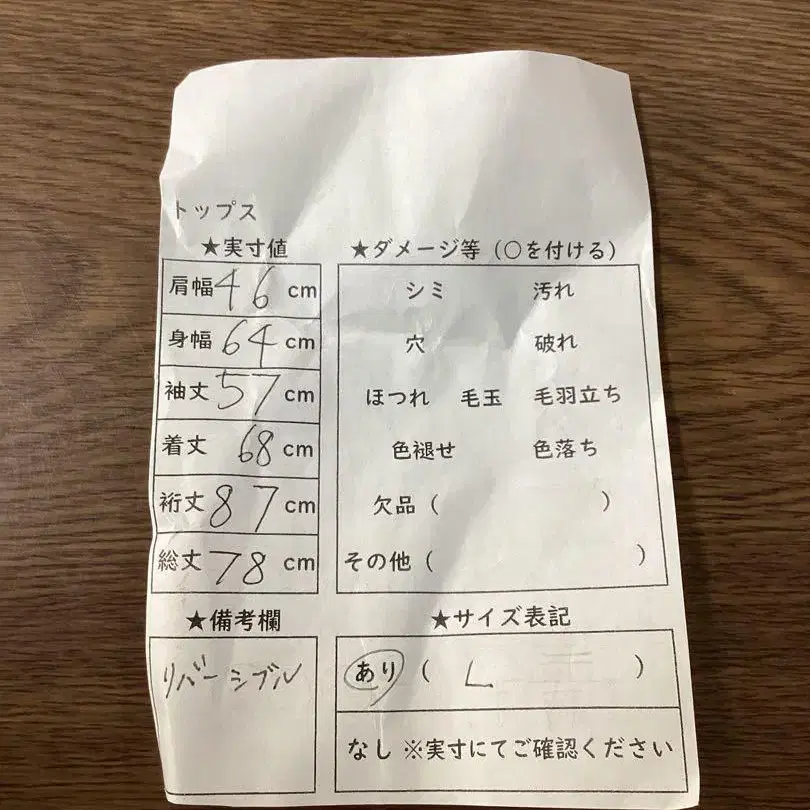 トップス
★実寸値
肩幅 46 cm
身幅 64 cm
袖丈 57 cm
着丈 68 cm
裄丈 87 cm
総丈 78 cm
★ダメージ等（○を付ける）
シミ 汚れ
穴 破れ
ほつれ 毛玉 毛羽立ち
色褪せ 色落ち
欠品（ ）
その他（ ）
★備考欄
リバーシブル
★サイズ表記
あり（ L ）
なし ※実寸にてご確認ください